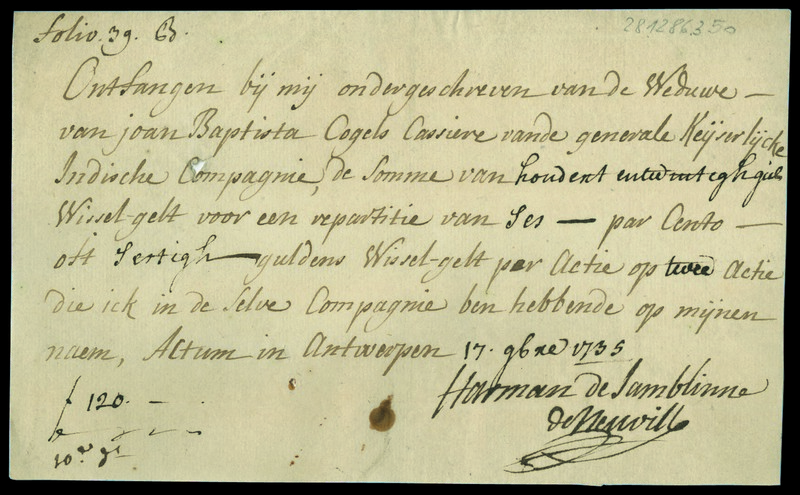 folio. 39. B.
281286350
Ontfangen bij mij ondergeschreven van de Weduwe —
van joan Baptista Cogels Cassiere vande generale Keijserlijcke
Indische Compagnie, de Somme van hondert entwintegh guls
Wissel-gelt voor een repartitie van Ses — par Cento —
oft Sestigh — guldens Wissel-gelt per Actie op twee Actie
die ick in de Selve Compagnie ben hebbende op mijnen
naem, Actum in Antwerpen 17. 9bre 1735
Harman de Jamblinne
de Neuvill
f 120. —
10